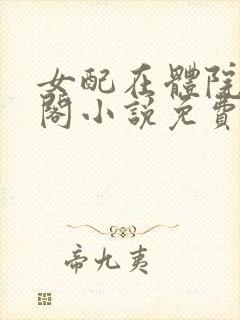 女配在體院
閣小說免費
帝九夷